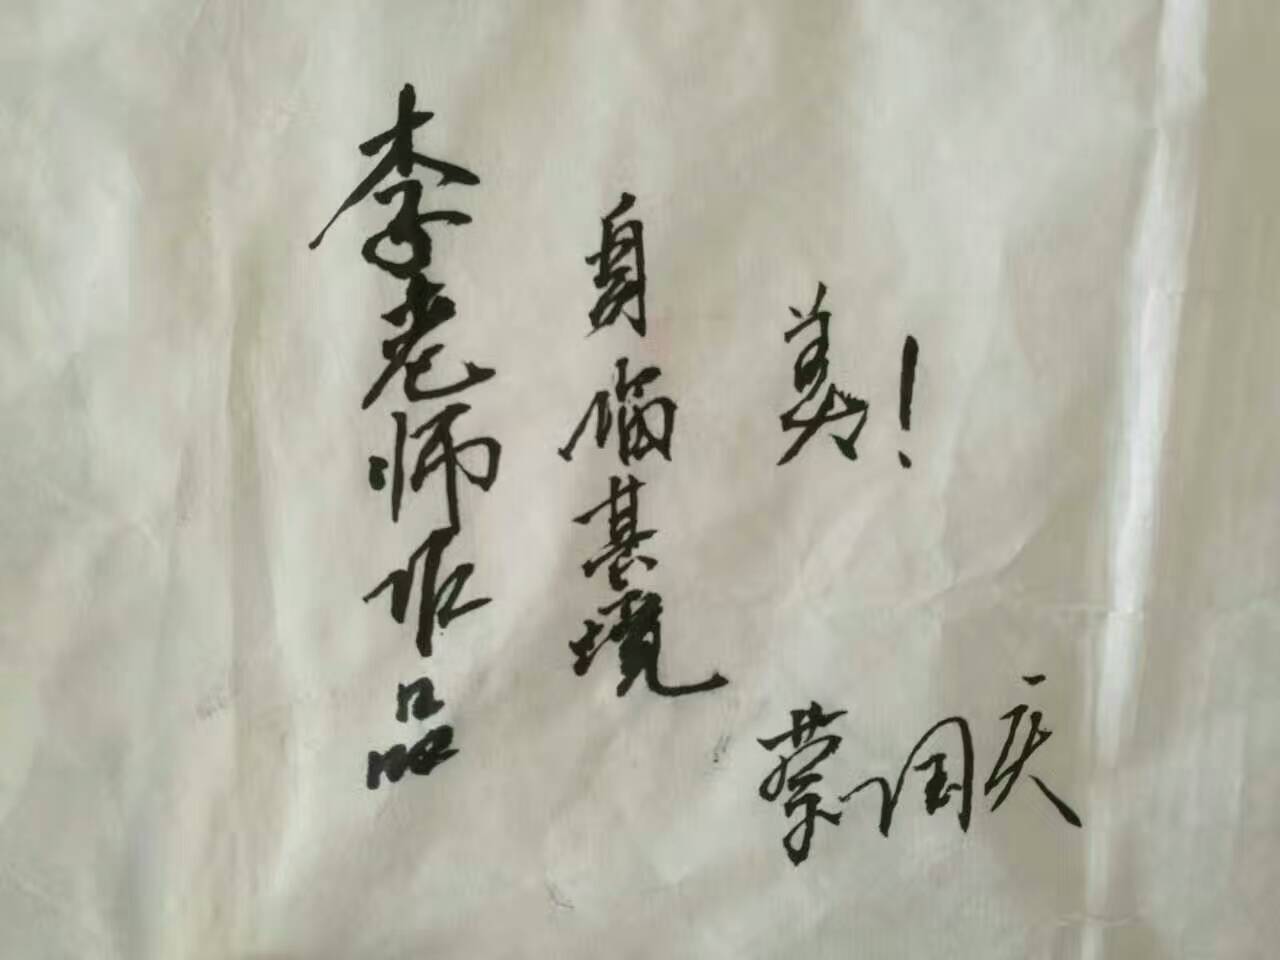 李老师作品
身临其境
美!
蔡国庆